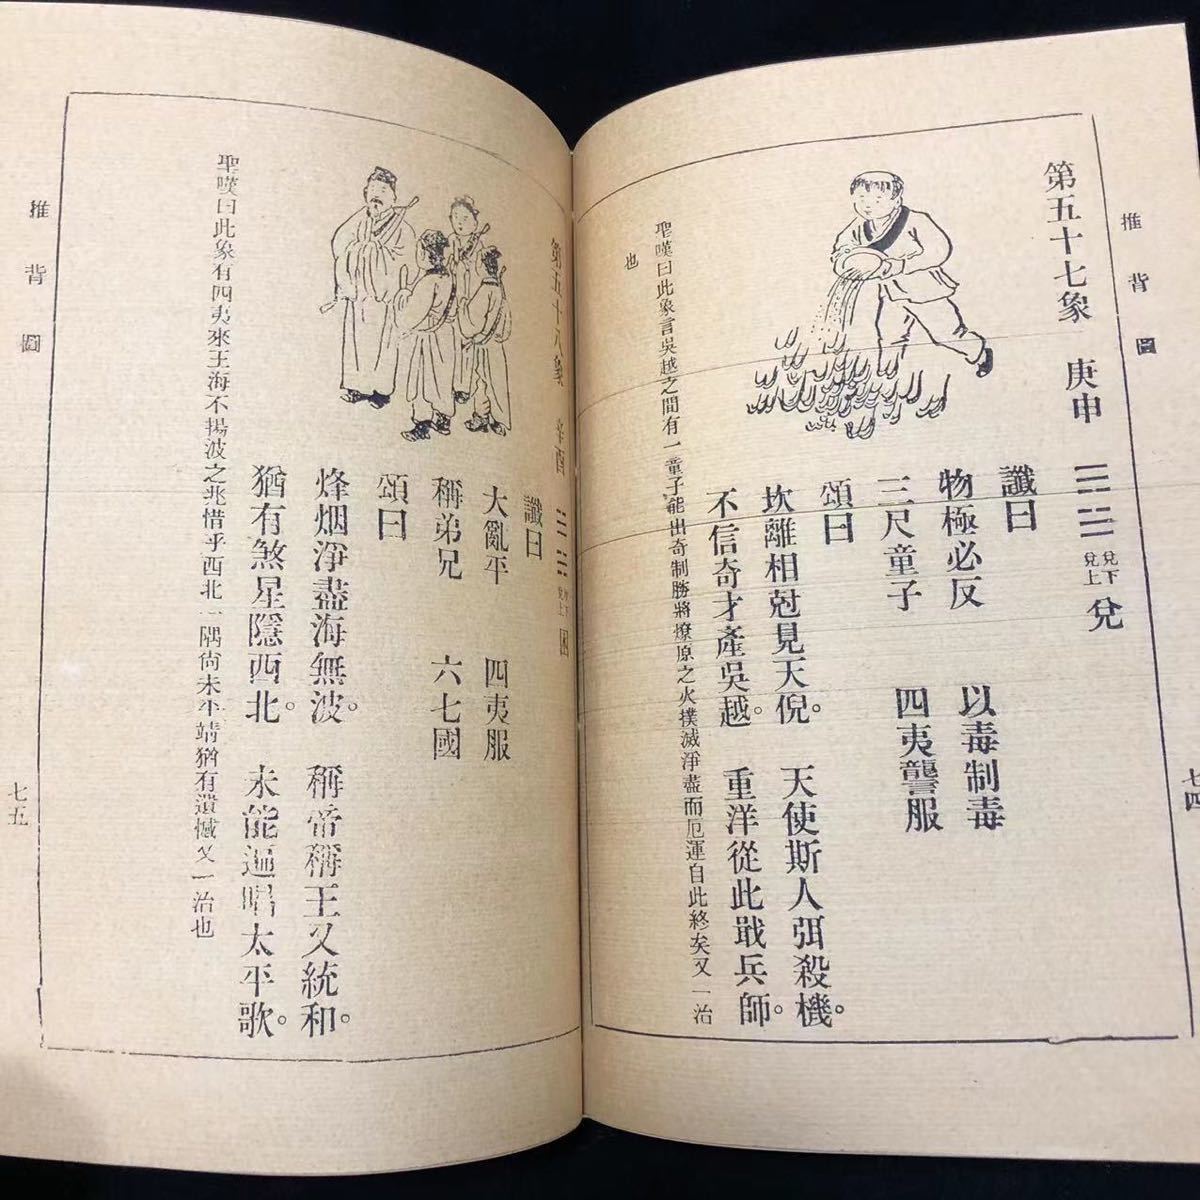 推背圖
七四
第五十七象 庚申 兌下兌上 兌
讖曰
物極必反 以毒制毒
三尺童子 四夷讋服
頌曰
坎離相尅見天倪。 天使斯人弭殺機。
不信奇才產吳越。 重洋從此戢兵師。
聖嘆曰此象言吳越之間有一童子能出奇制勝將燎原之火撲滅淨盡而厄運自此終矣又一治
也
第五十八象 辛酉 坎下兌上 困
讖曰
大亂平 四夷服
稱弟兄 六七國
頌曰
烽烟淨盡海無波。 稱帝稱王又統和。
猶有煞星隱西北。 未能遍唱太平歌。
聖嘆曰此象有四夷來王海不揚波之兆惜乎西北一隅尚未平靖猶有遺憾又一治也
推背圖
七五